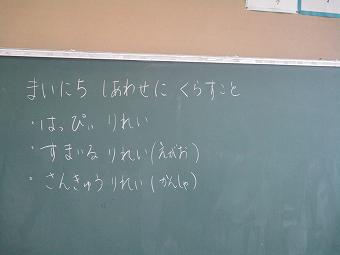 まいにち しあわせに くらすこと
・はっぴぃ りれい
・すまいる りれい(えがお)
・さんきゅう りれい(かんしゃ)